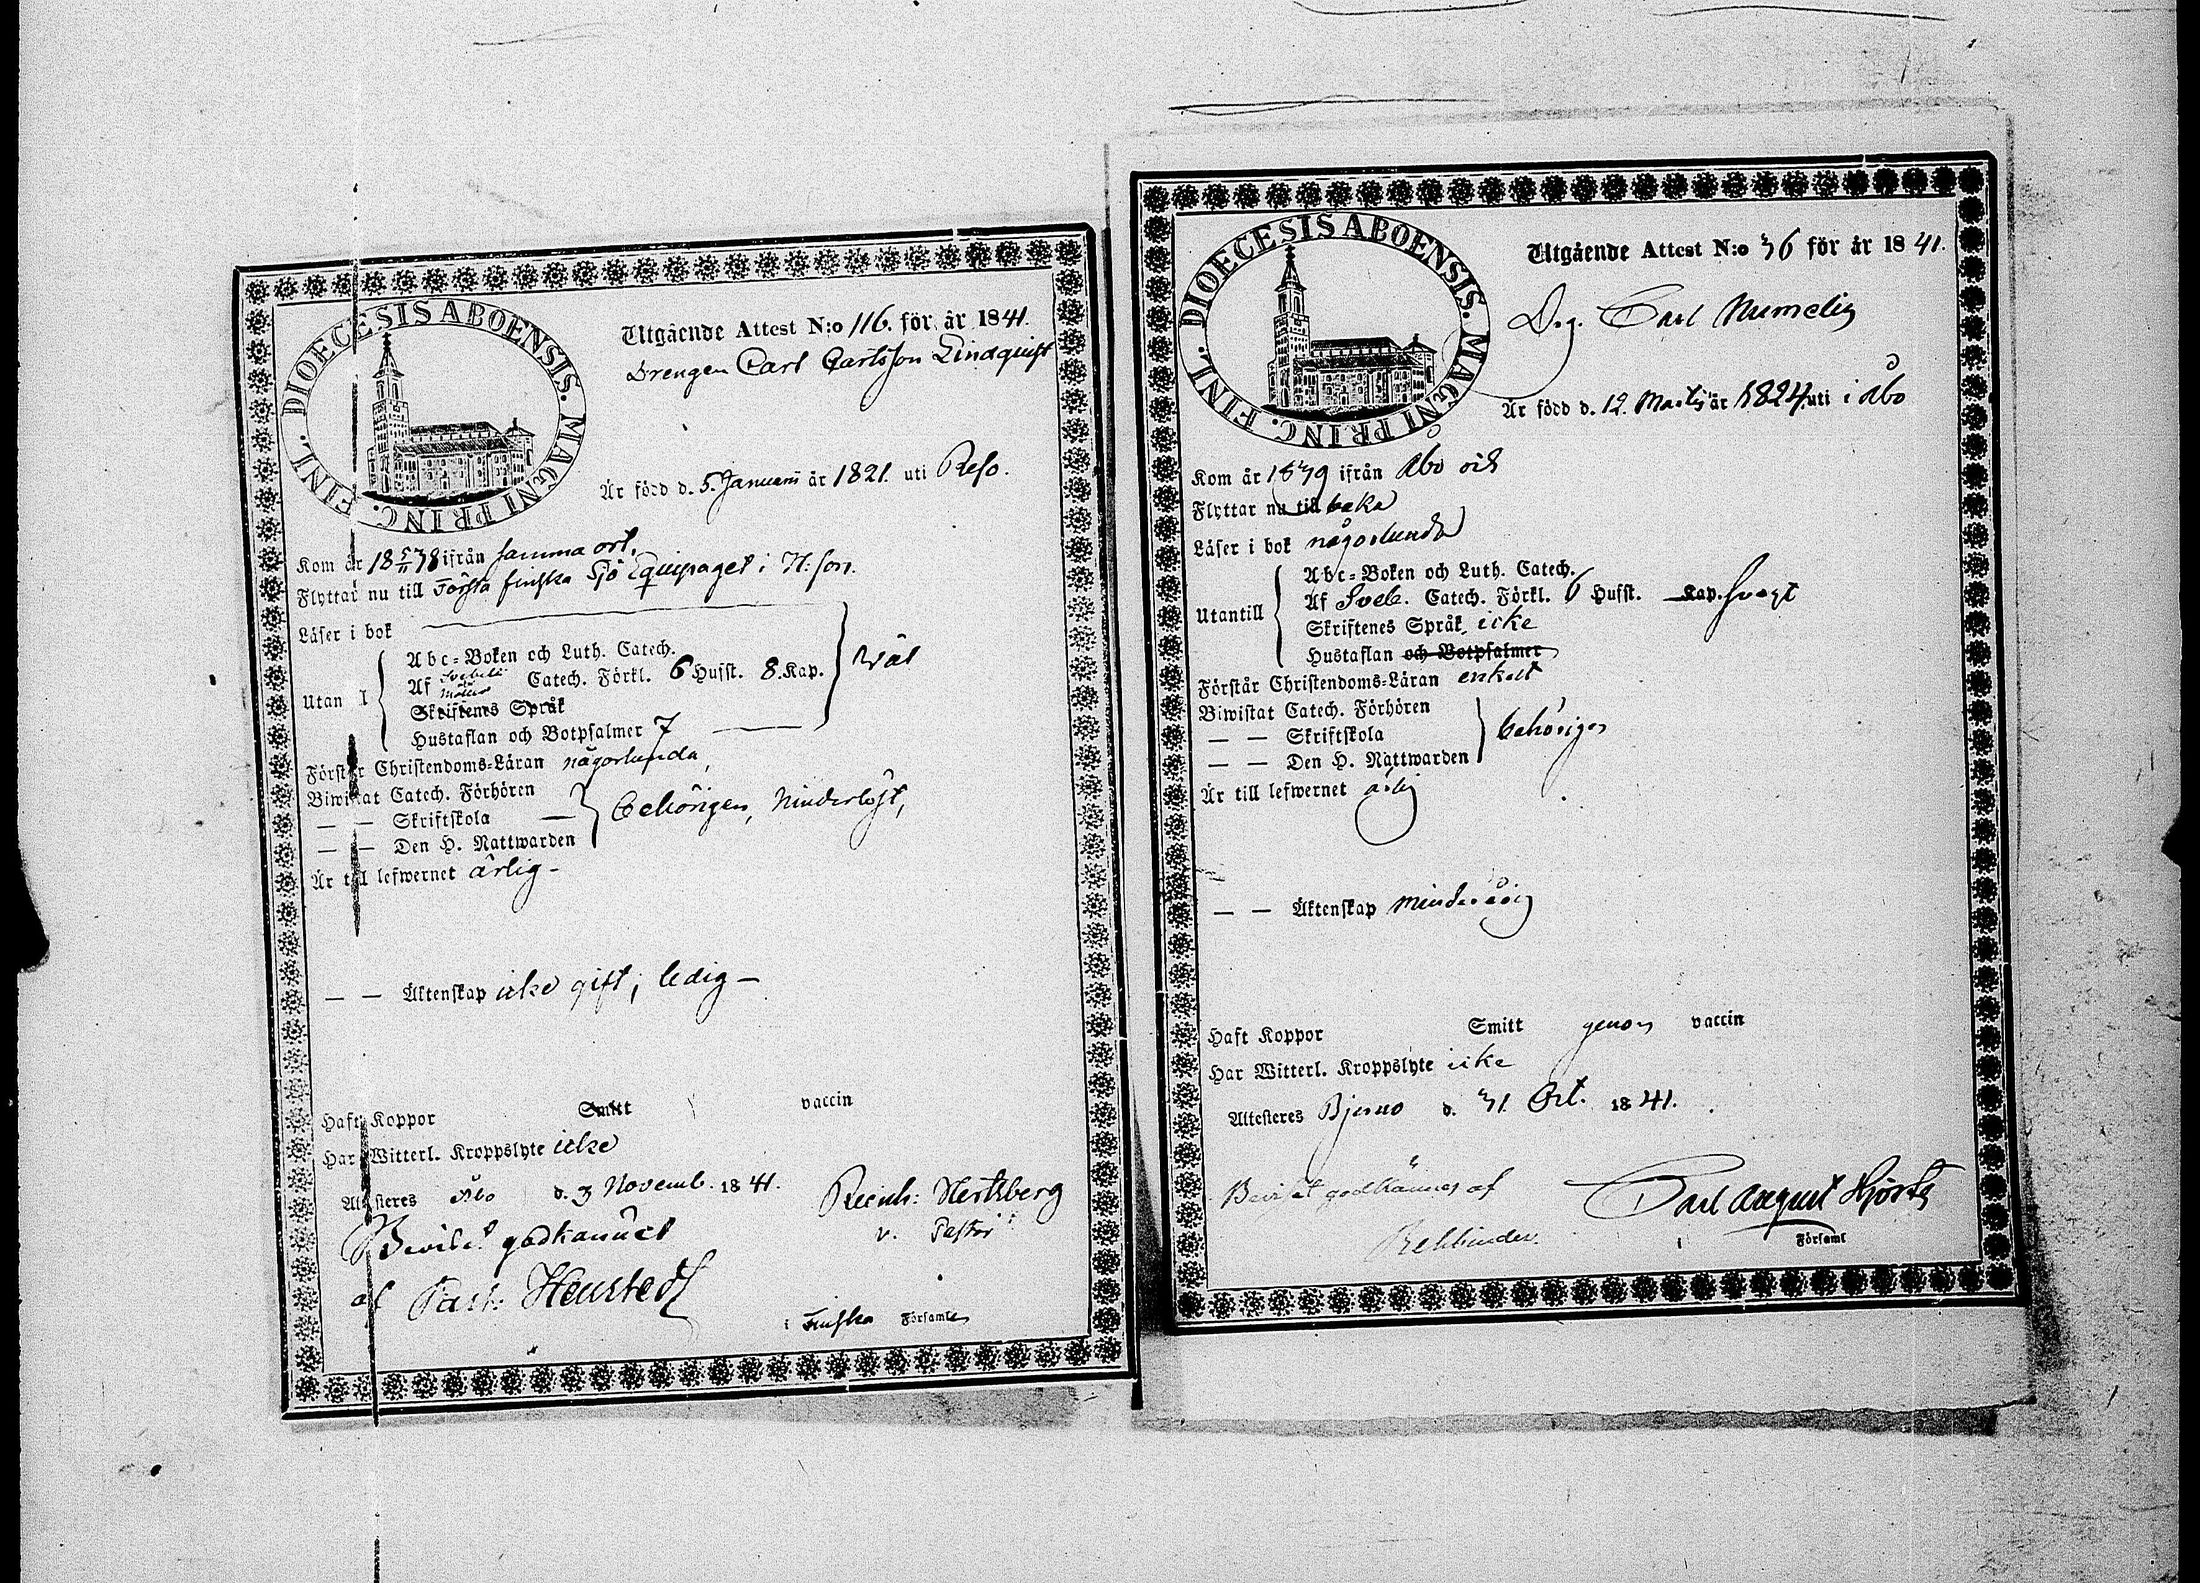 DIOECESIS ABOENSIS. MAGNI PRINC. FINL.
Utgående Attest N:o 116. för år 1841.
Drengen Carl Carlsson Lindquist
Är född d. 5. Januarii år 1821. uti Reso.
Kom år 18 5/11 38 ifrån samma ort.
Flyttar nu till Första finska Sjö Equipaget i H:fors.
Läser i bok
Abc-Boken och Luth. Catech.
Af Svebelii Catech. Förkl. 6 Hufst. 8. Kap.
Utantill
wäl
Skriftenes Språk
Hustaflan och Botpsalmer 7
Förstår Christendoms-Läran någorlunda,
Biwistat Catech. Förhören
— — Skriftskola
behörigen,
— — Den H. Nattwarden
Är till lefwernet ärlig -
— — Äktenskap icke gift, ledig -
Haft Koppor Smitt vaccin
Har Witterl. Kroppslyte icke
Attesteres Åbo d. 3 Novemb. 1841.
Reinh: Hertzberg
v. Pastor
Beviset godkännes
af
i Finska Församle
DIOECESIS ABOENSIS. MAGNI PRINC. FINL.
Utgående Attest N:o 36 för år 1841.
Drg. Carl Numelin
Är född d. 12. Martii år 1824 uti i Åbo
Kom år 1839 ifrån Åbo och
Flyttar nu till baka
Läser i bok någorlunda
Abc-Boken och Luth. Catech.
Af Sveb. Catech. Förkl. 6 Hufst. Kap. svagt
Utantill
Skriftenes Språk icke
Hustaflan och Botpsalmer
Förstår Christendoms-Läran enkelt
Biwistat Catech. Förhören
— — Skriftskola
behörigen
— — Den H. Nattwarden
Är till lefwernet ärlig
— — Äktenskap minderårig
Haft Koppor Smitt genom vaccin
Har Witterl. Kroppslyte icke
Attesteres Bjerno d. 31 Oct. 1841.
Beviset godkännes af
Carl August Hjorth
Rehbinder.
i Församl